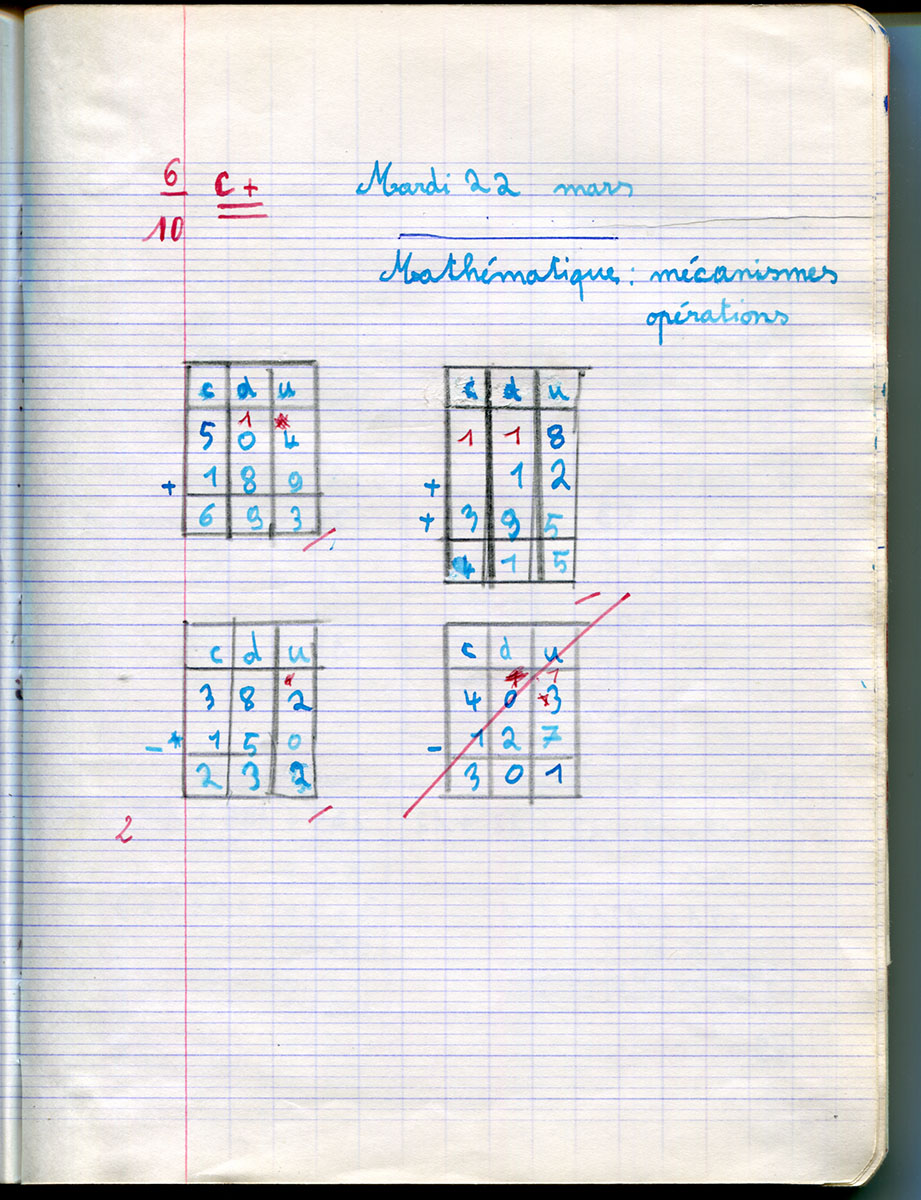 6 C + Mardi 22 mars
10
Mathématique : mécanismes
opérations
c d u
1
5 0 4
+ 1 8 9
6 9 3
c d u
1 1 8
+ 1 2
+ 3 9 5
4 1 5
c d u
3 8 2
- 1 5 0
2 3 2
c d u
1
4 0 3
- 1 2 7
3 0 1
2